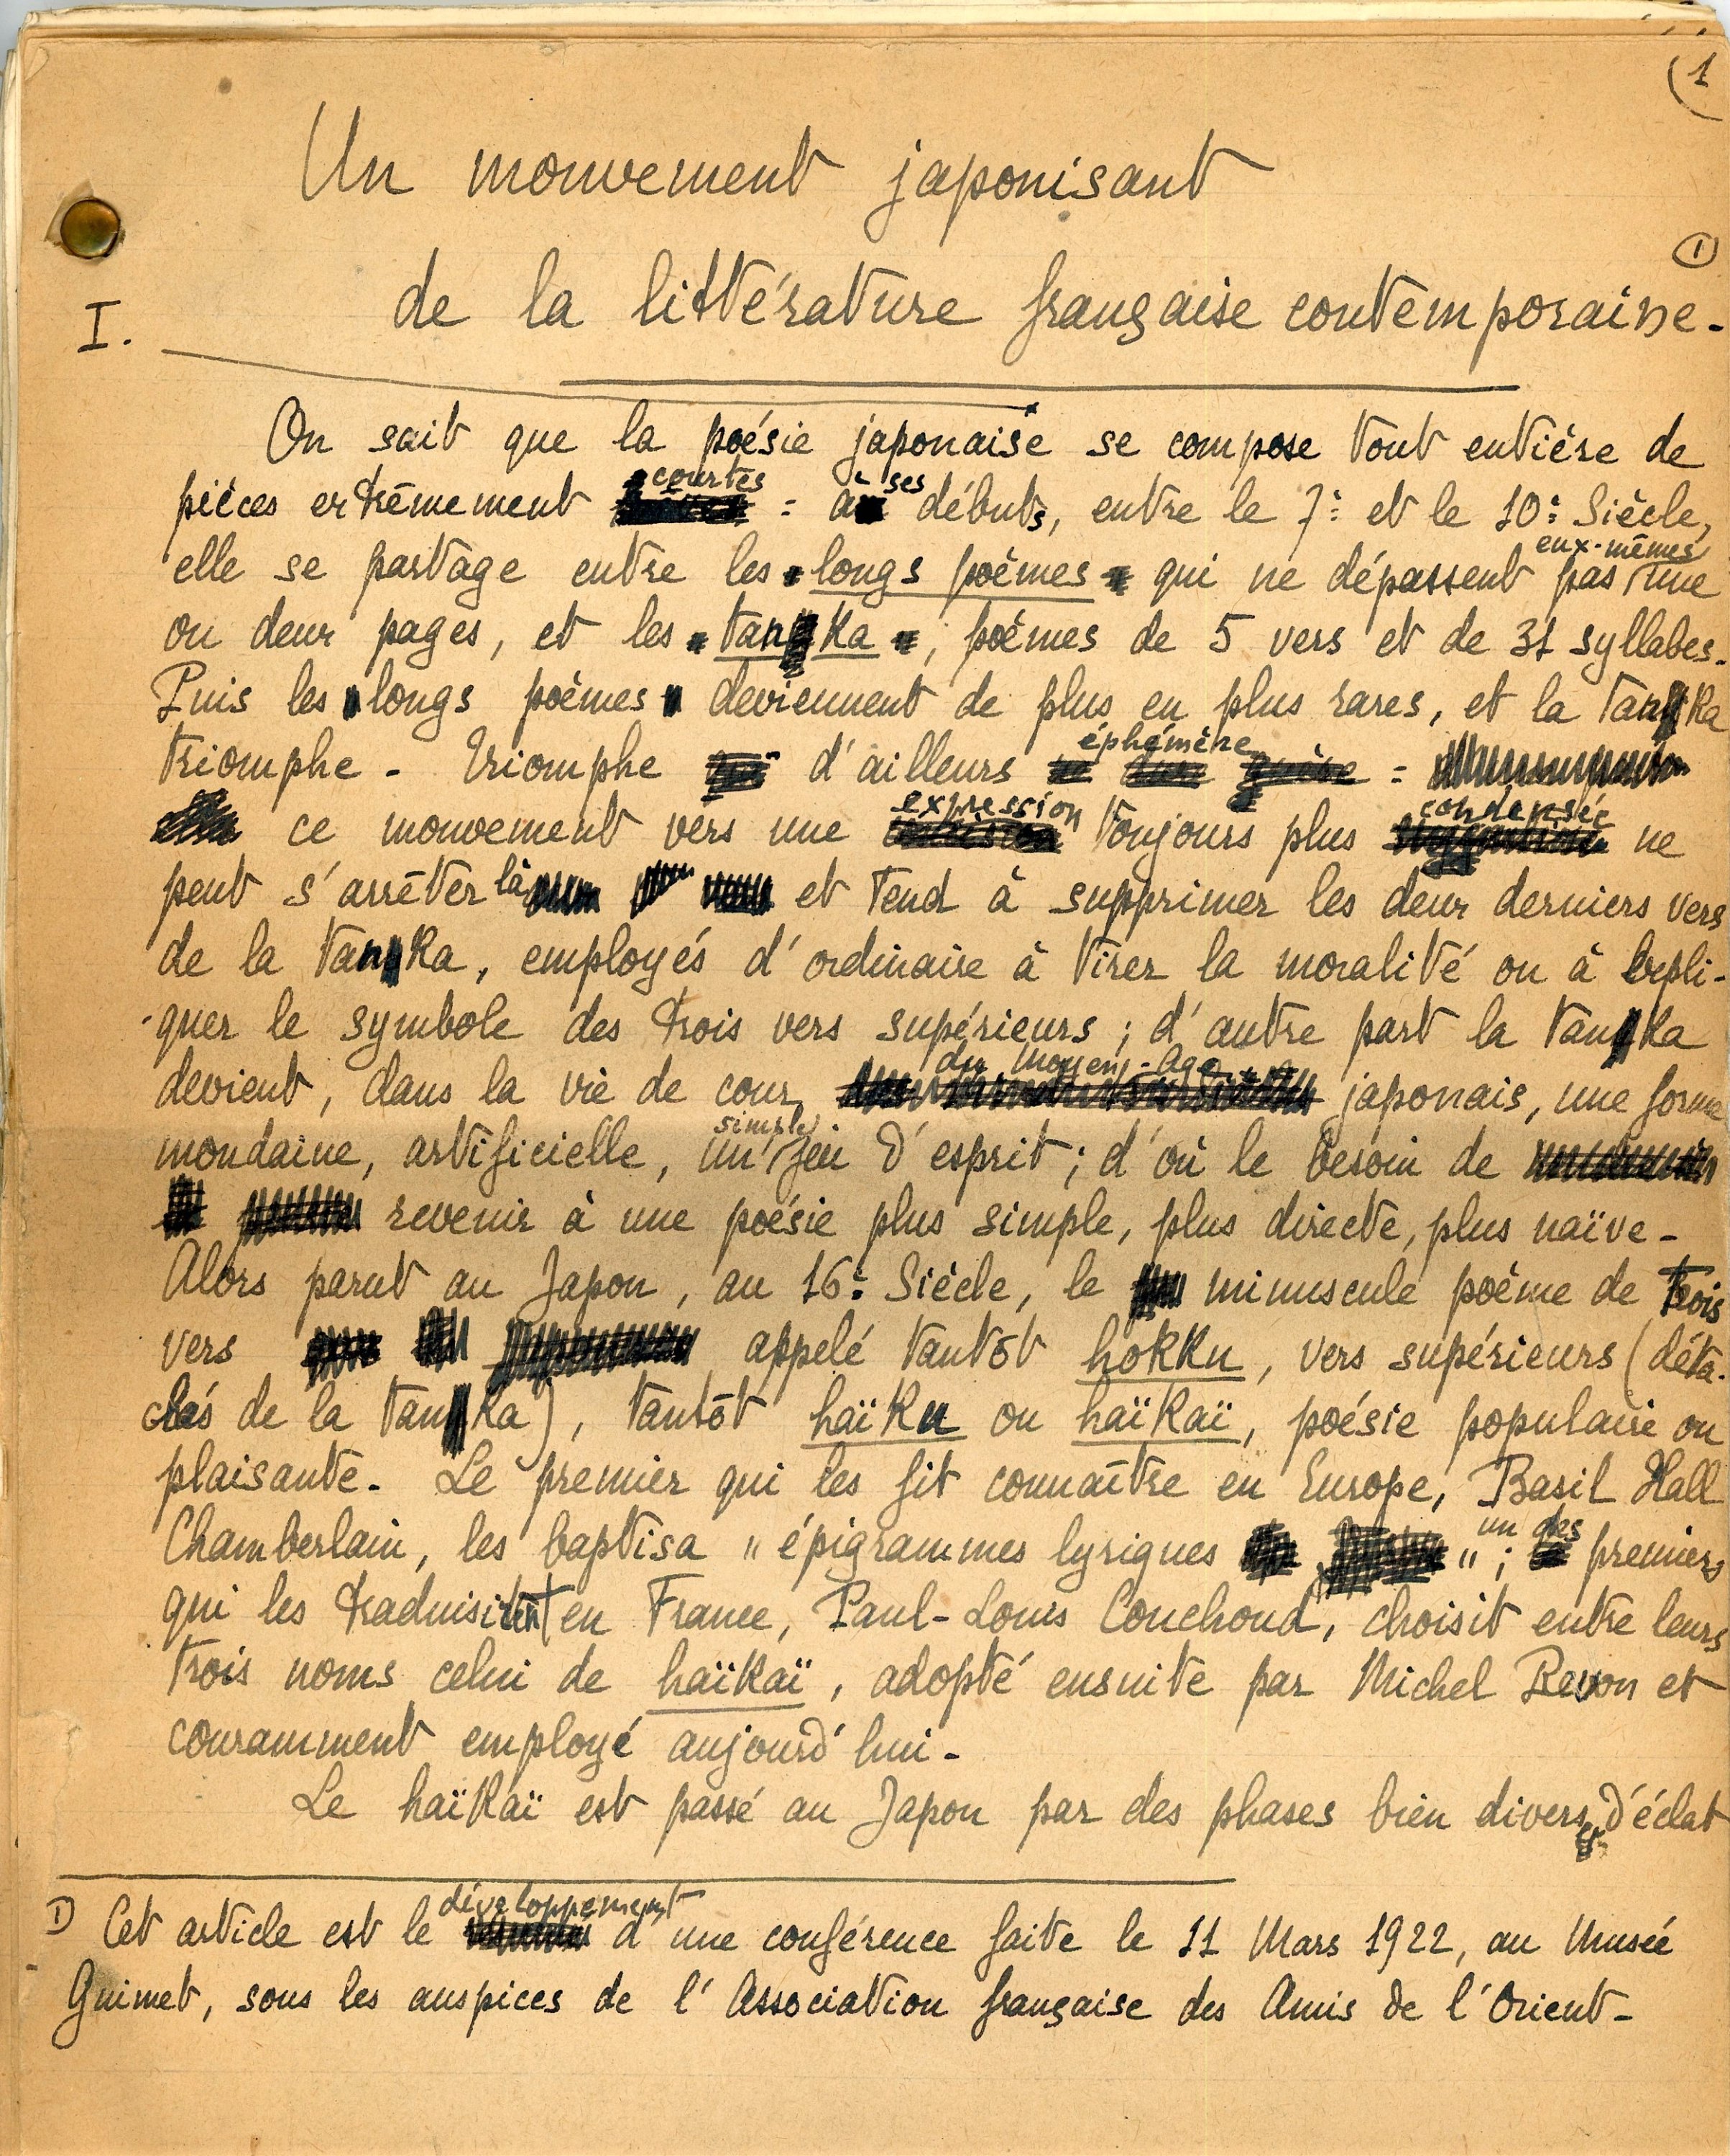 (1
Un mouvement japonisant
de la littérature française contemporaine. (1)
I.
On sait que la poésie japonaise se compose tout entière de
pièces extrêmement courtes : à ses débuts, entre le 7e et le 10e Siècle,
elle se partage entre les longs poèmes qui ne dépassent pas eux-mêmes une
ou deux pages, et les tanka, poèmes de 5 vers et de 31 syllabes.
Puis les longs poèmes deviennent de plus en plus rares, et la tanka
triomphe - Triomphe d'ailleurs éphémère :
ce mouvement vers une expression toujours plus condensée ne
peut s'arrêter là et tend à supprimer les deux derniers vers
de la tanka, employés d'ordinaire à tirer la moralité ou à expli-
-quer le symbole des trois vers supérieurs ; d'autre part la tanka
devient, dans la vie de cour du Moyen-Age japonais, une forme
mondaine, artificielle, un simple jeu d'esprit ; d'où le besoin de
revenir à une poésie plus simple, plus directe, plus naïve -
Alors parut au Japon, au 16e Siècle, le minuscule poème de trois
vers appelé tantôt hokku, vers supérieurs (déta-
chés de la tanka), tantôt haïku ou haïkaï, poésie populaire ou
plaisante. Le premier qui les fit connaître en Europe, Basil Hall
Chamberlain, les baptisa " épigrammes lyriques " ; un des premiers
qui les traduisirent en France, Paul-Louis Couchoud, choisit entre leurs
trois noms celui de haïkaï, adopté ensuite par Michel Revon et
couramment employé aujourd'hui -
Le haïkaï est passé au Japon par des phases bien diverses d'éclat
1) Cet article est le développement d'une conférence faite le 11 Mars 1922, au Musée
Guimet, sous les auspices de l'Association française des Amis de l'Orient -